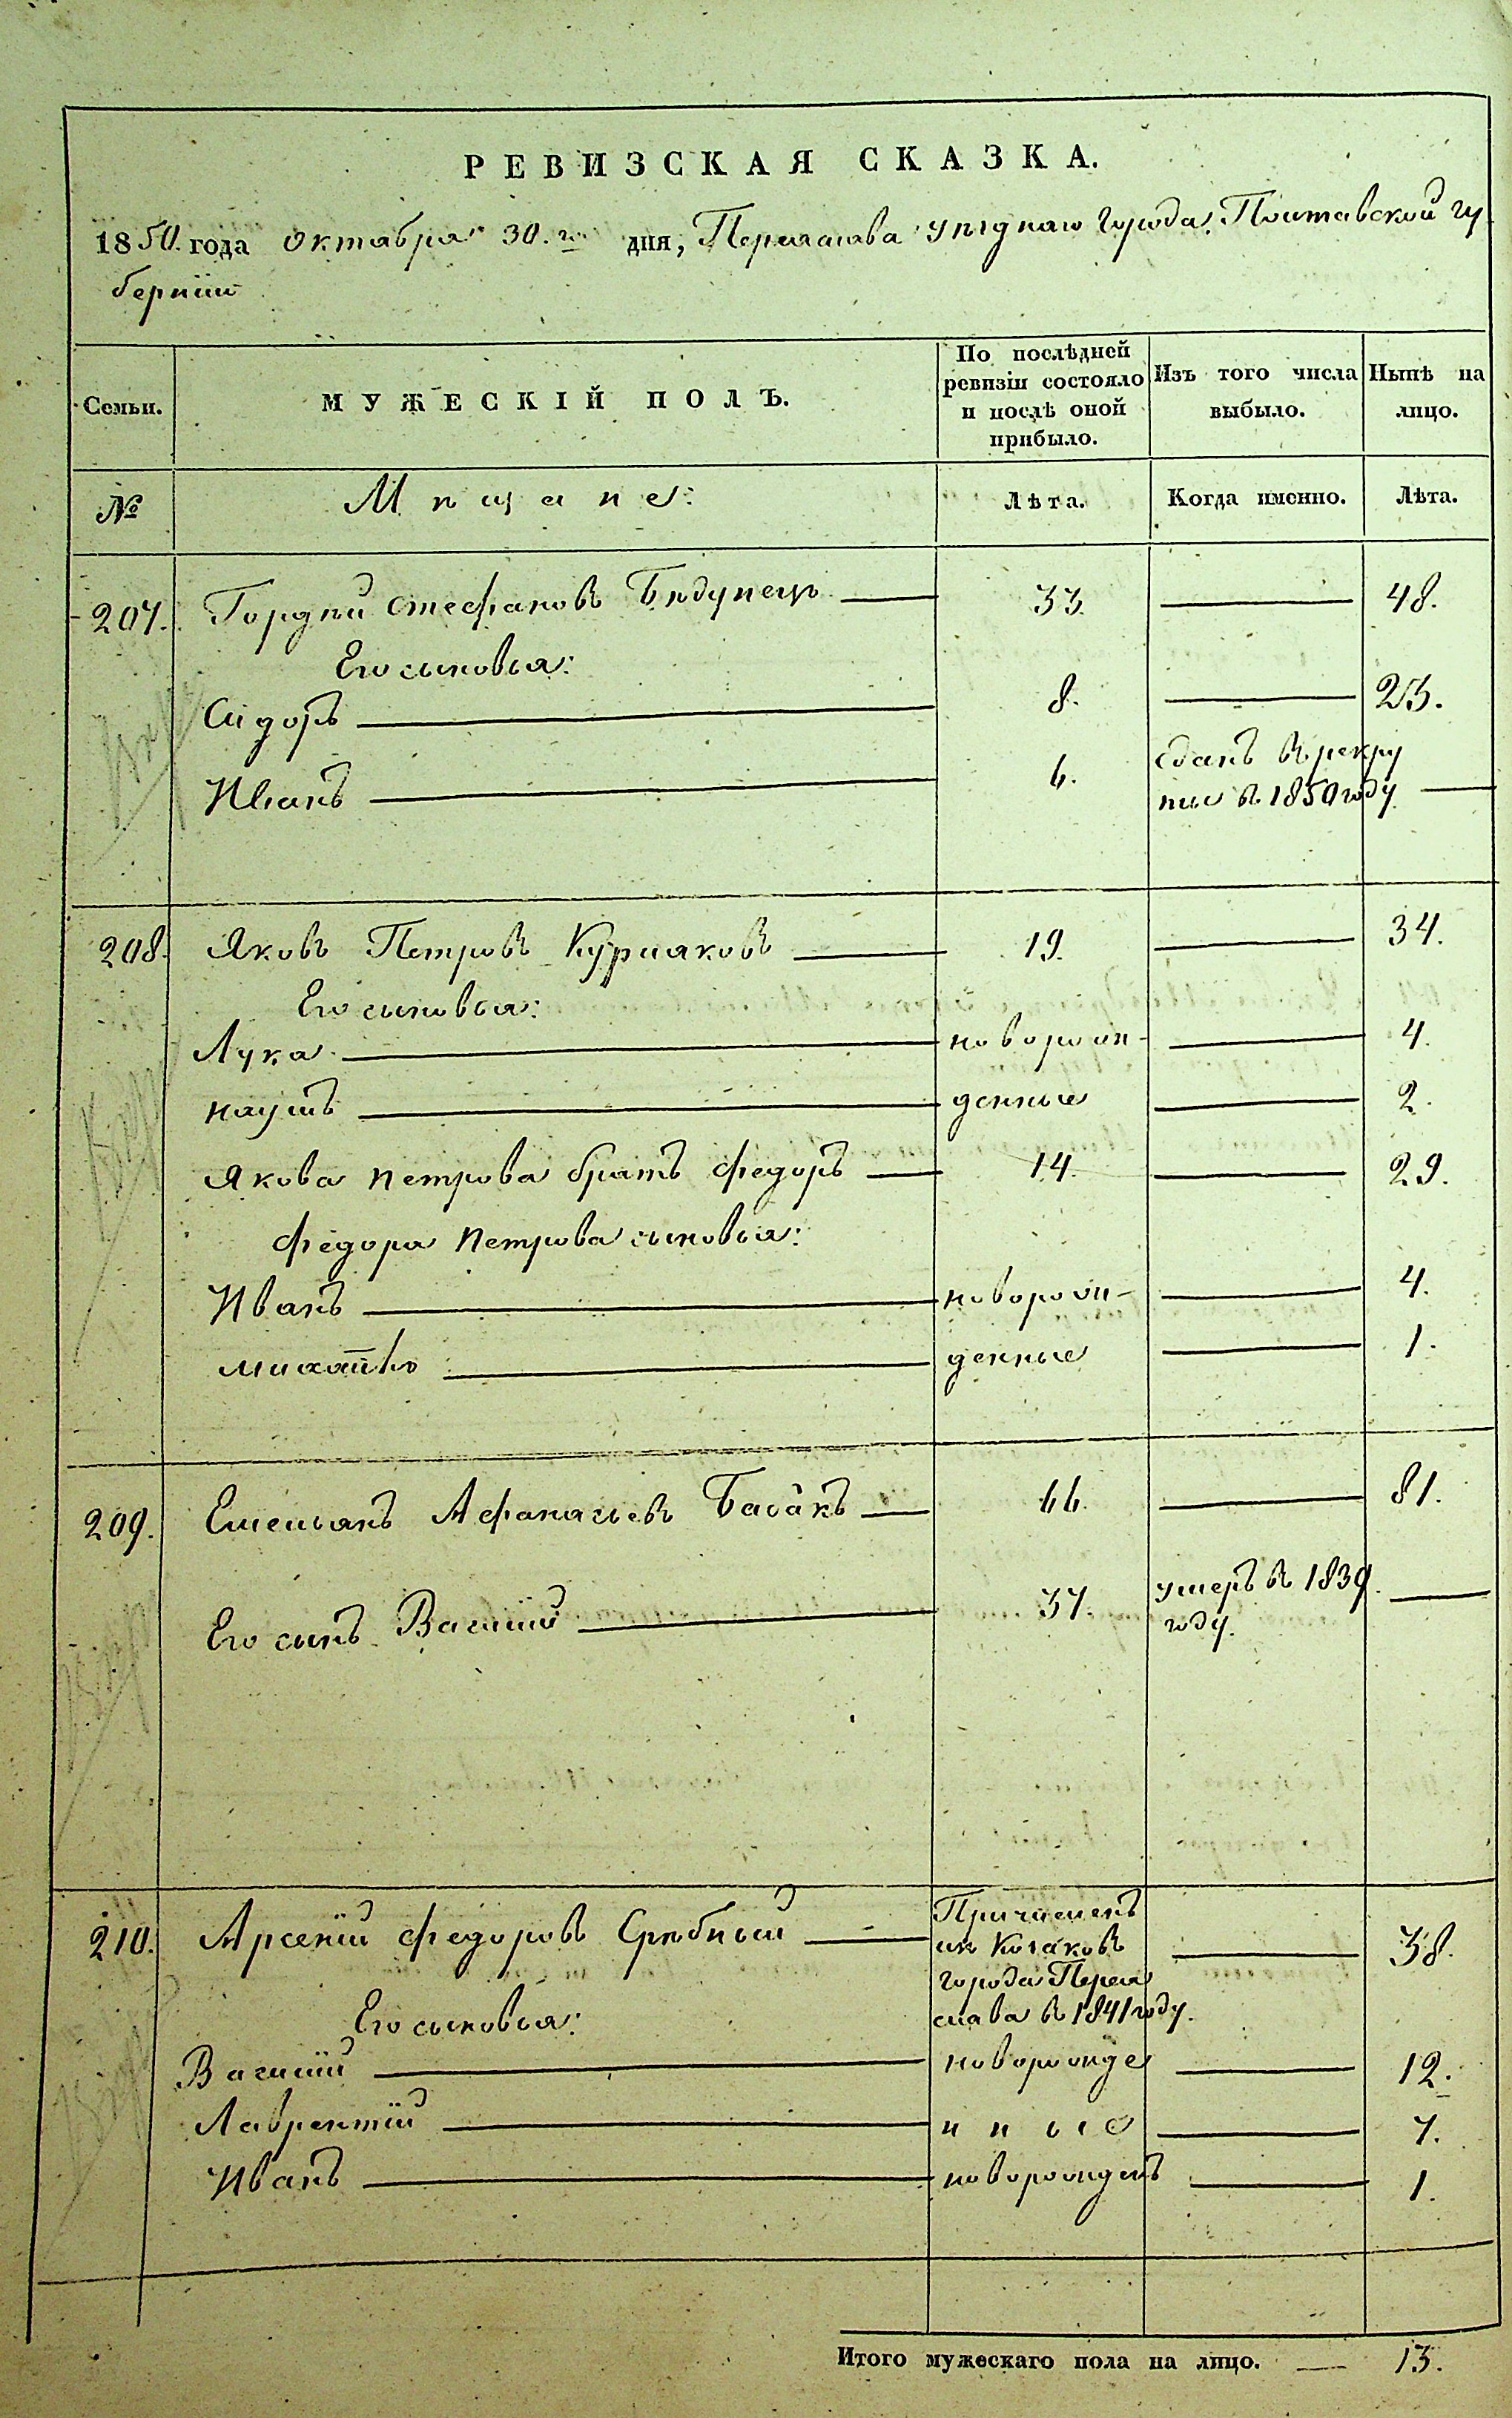 РЕВИЗСКАЯ СКАЗКА.
1850. года Октября 30.го дня, Переяслава Уѣзднаго Города, Полтавской гу
берніи
Семьи.
МУЖЕСКІЙ ПОЛЪ.
По послѣдней
ревизіи состояло
и послѣ оной
прибыло.
Изъ того числа
выбыло.
Нынѣ на
лицо.
№
Мѣщане:
Лѣта.
Когда именно.
Лѣта.
207. Гордѣй Стефановъ Бѣдунецъ 33. 48.
Его сыновья:
Сидоръ 8. 23.
Иванъ 6. сданъ въ рекру
ты въ 1850 году
208. Яковъ Петровъ Курмаковъ 19. 34.
Его сыновья:
Лука новорож- 4.
Наумъ денные 2.
Якова Петрова братъ Федоръ 14. 29.
Федора Петрова сыновья:
Иванъ новорож- 4.
Михайло денные 1.
209. Емельянъ Афанасьевъ Басакъ 66. 81.
Его сынъ Василій 37. умеръ въ 1839.
году.
210. Арсеній Федоровъ Срѣбный Причисленъ 38.
изъ Козаковъ
города Перея
слава въ 1841 году.
Его сыновья:
Василій новорожде 12.
Лаврентій нные 7.
Иванъ новорожденъ 1.
Итого мужескаго пола на лицо. 13.